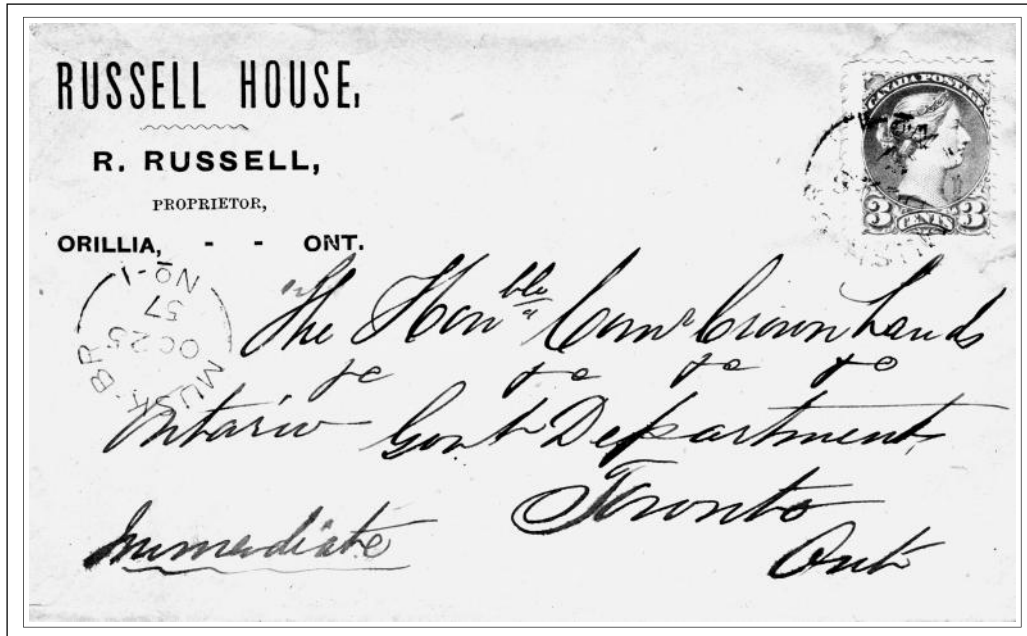 RUSSELL HOUSE,
R. RUSSELL,
PROPRIETOR,
ORILLIA, - - ONT.
CANADA POSTAGE
3 CENTS 3
MUSK. BR
OC 25
57
NO-1
The Honble Comr Crown Lands
&c &c &c &c
Ontario Govt Department
Toronto
Ont
Immediate